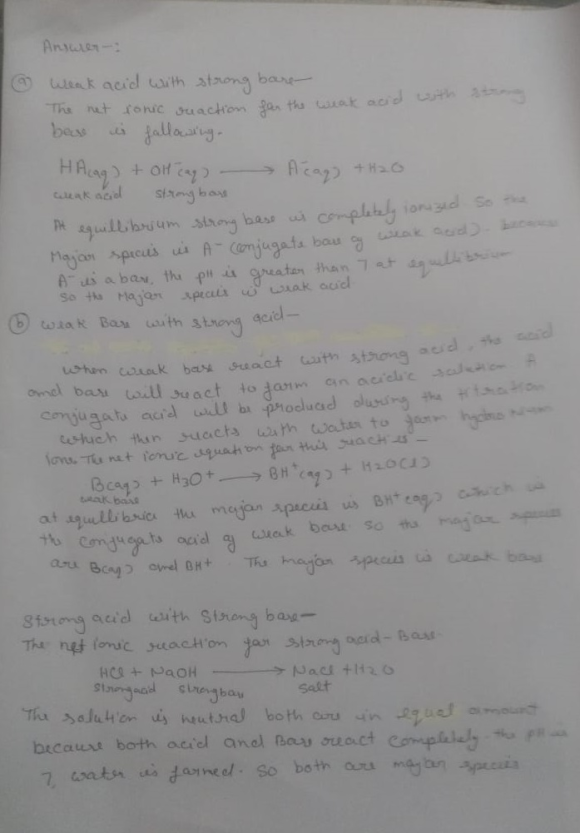 Answer-:
(a) Weak acid with strong base—
The net ionic reaction for the weak acid with strong
base is fallowing.
HA(aq) + OH⁻(aq) ⟶ A⁻(aq) + H2O
weak acid strong base
At equillibrium strong base is completely ionized. So the
Major species is A⁻ (conjugate base of weak acid). because
A⁻ is a base, the pH is greater than 7 at equillibrium
So the Major species is weak acid
(b) Weak Base with strong acid—
When weak base react with strong acid, the acid
and base will react to form an acidic solution A
conjugate acid will be produced during the titration
which then reacts with water to form hydronium
ions The net ionic equation for this react is—
B(aq) + H3O+ ⟶ BH+(aq) + H2O(l)
weak base
at equillibria the major species is BH+(aq) which is
the conjugate acid of weak base. So the major species
are B(aq) and BH+. The major species is weak base
Strong acid with Strong base—
The net ionic reaction for strong acid-Base.
HCl + NaOH ⟶ NaCl + H2O
Strong acid Strong base Salt
The solution is neutral both are in equal amount
because both acid and Base react completely. the pH is
7, water is formed. So both are major species